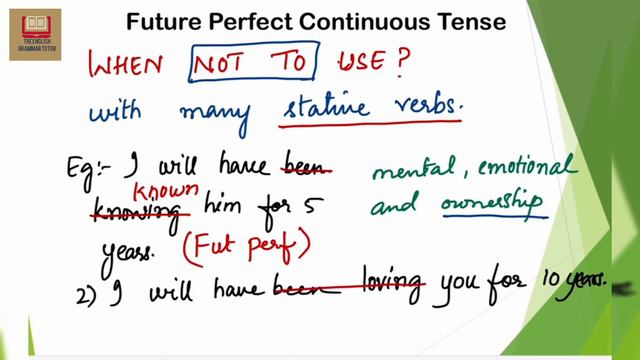 Future Perfect Continuous Tense
THEENGLISH
GRAMMAR TUTOR
WHEN NOT TO USE?
with many stative verbs.
Eg:- I will have been
known
knowing him for 5
years. (Fut perf)
mental, emotional
and ownership
2) I will have been loving you for 10 years.